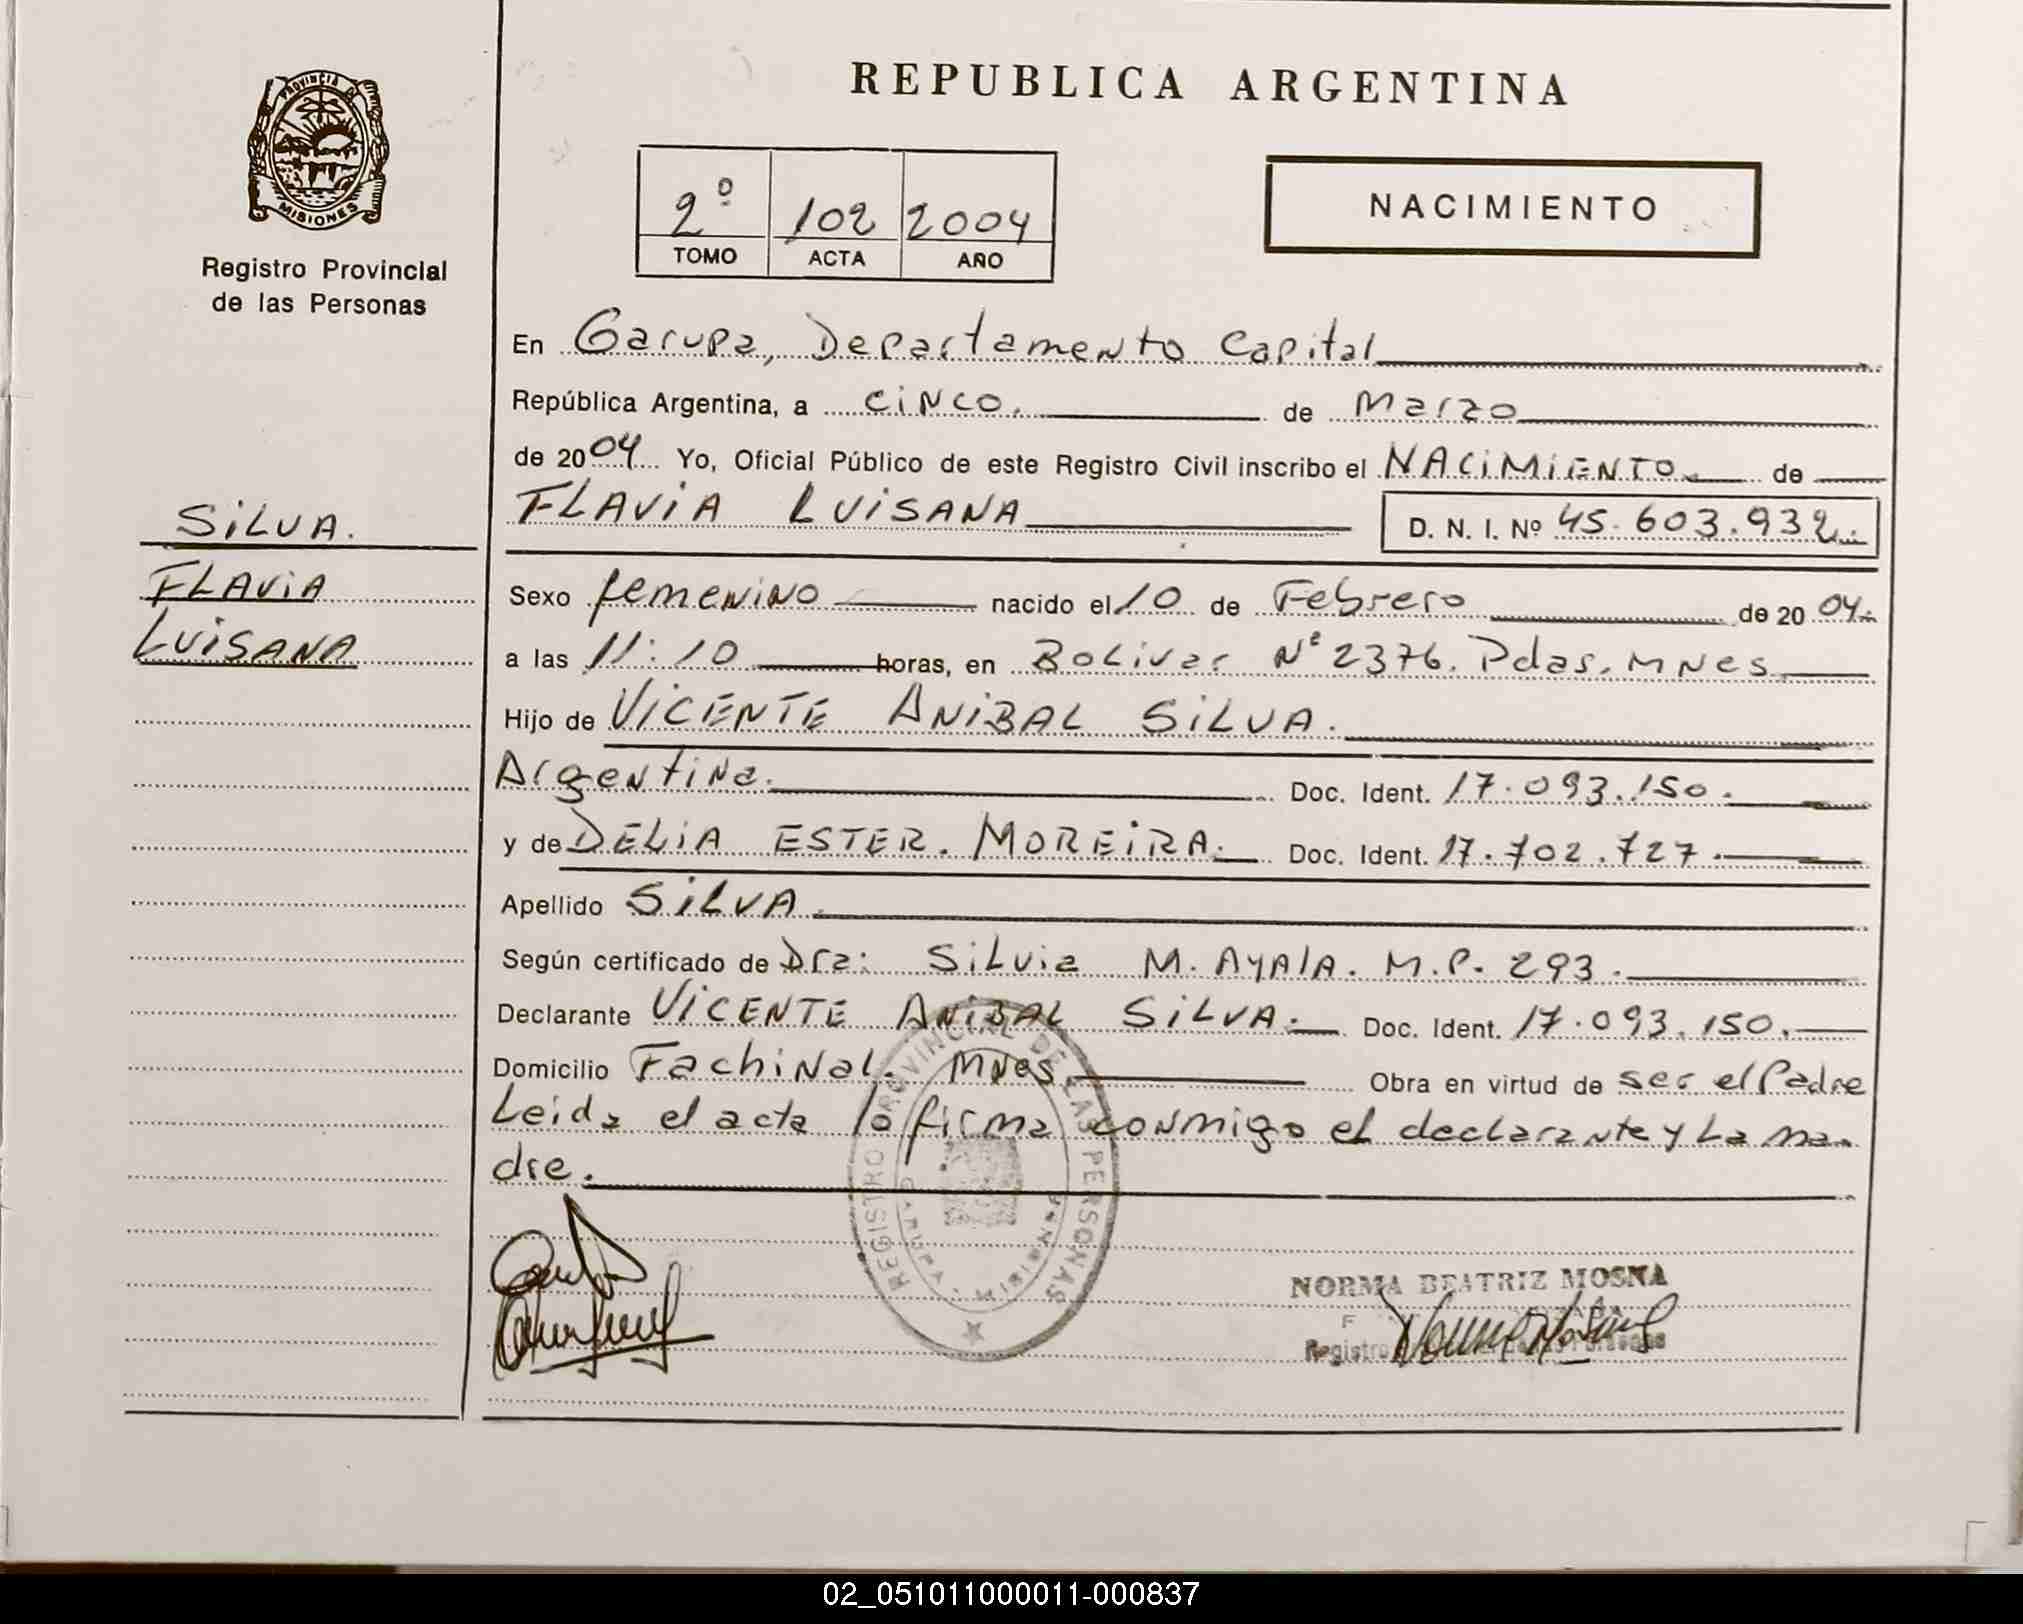 PROVINCIA DE
MISIONES
Registro Provincial
de las Personas
REPUBLICA ARGENTINA
2º 102 2004
TOMO ACTA AÑO
NACIMIENTO
En Garupa, Departamento Capital
República Argentina, a cinco. de Marzo
de 2004 Yo, Oficial Público de este Registro Civil inscribo el NACIMIENTO de
FLAVIA LUISANA D. N. I. Nº 45.603.932
SILVA.
FLAVIA
LUISANA
Sexo femenino nacido el 10 de Febrero de 2004
a las 11:10 horas, en Bolivar Nº 2376. Pdas. Mnes
Hijo de VICENTE ANIBAL SILVA.
Argentina. Doc. Ident. 17.093.150.
y de DELIA ESTER. MOREIRA. Doc. Ident. 17.702.727.
Apellido SILVA
Según certificado de Dra: Silvia M. Ayala. M.P. 293.
Declarante VICENTE ANIBAL SILVA. Doc. Ident. 17.093.150.
Domicilio Fachinal. Mnes Obra en virtud de ser el Padre
Leida el acta la firma conmigo el declarante y La ma
dre.
REGISTRO PROVINCIAL DE LAS PERSONAS
GARUPA - MISIONES
NORMA BEATRIZ MOSNA
Registro Personas
02_051011000011-000837